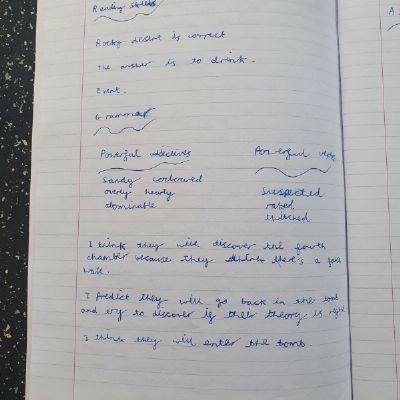 Reading skills
Rocky desert is correct
The answer is to drink.
Event.
Grammar
Powerful adjectives Powerful verbs
Sandy
overly Suspected
abominable rated
twitched
I think they will discover the fourth
chamber because they think there's a false
wall.
I predict they will go back in the tomb
and try to discover if their theory is right
I think they will enter the tomb.
A